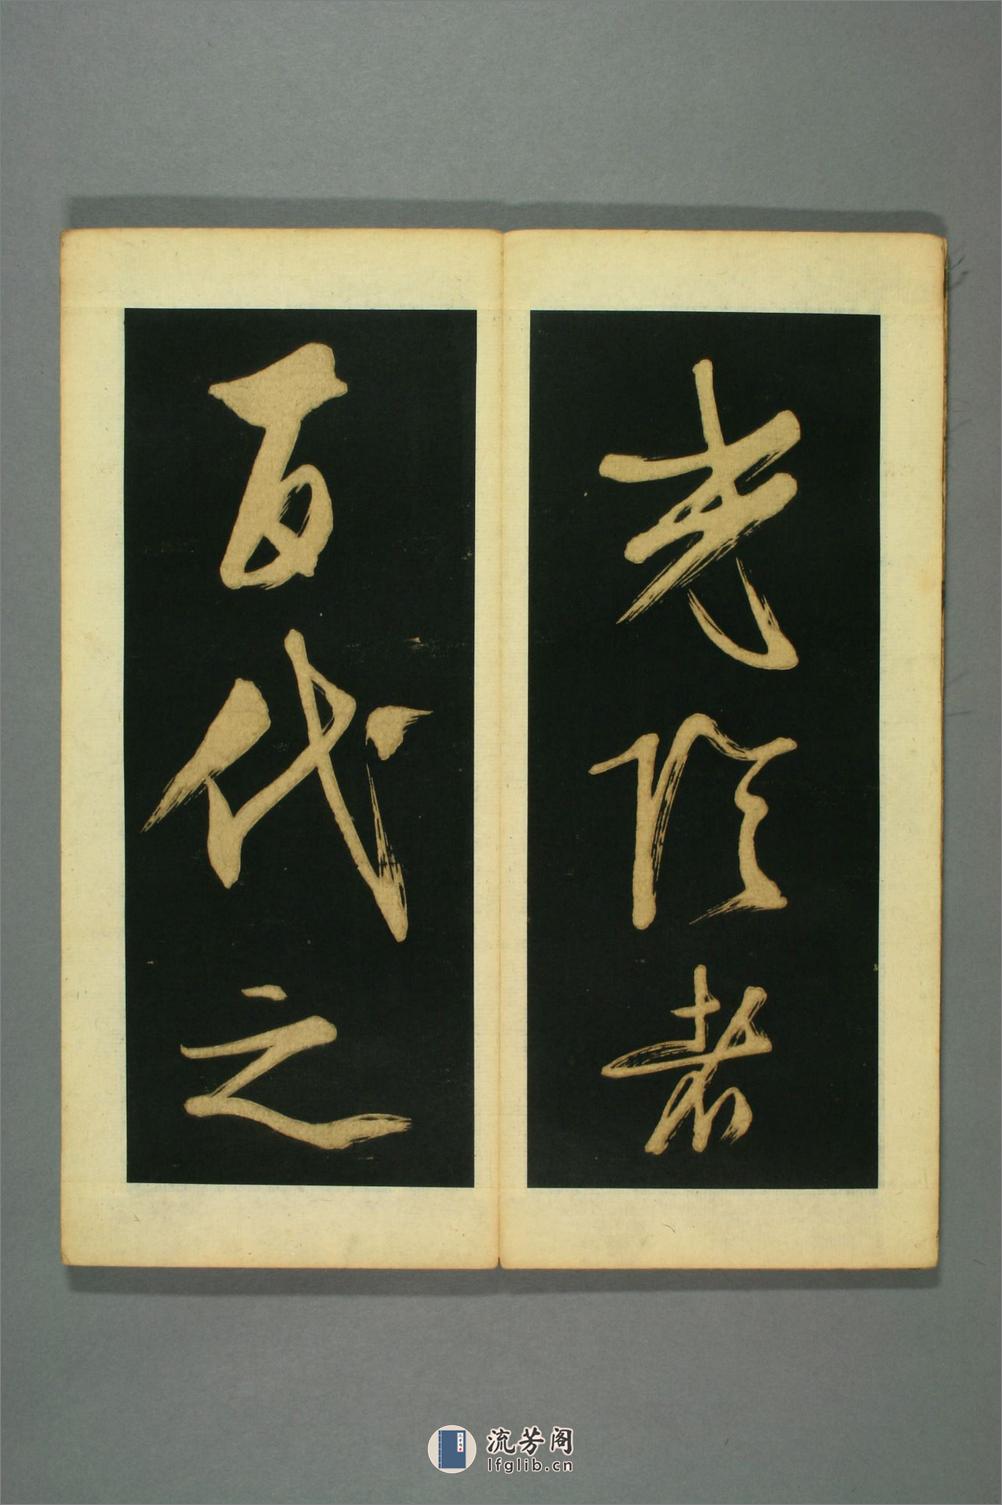 光陰者
百代之
流芳阁
lfglib.cn